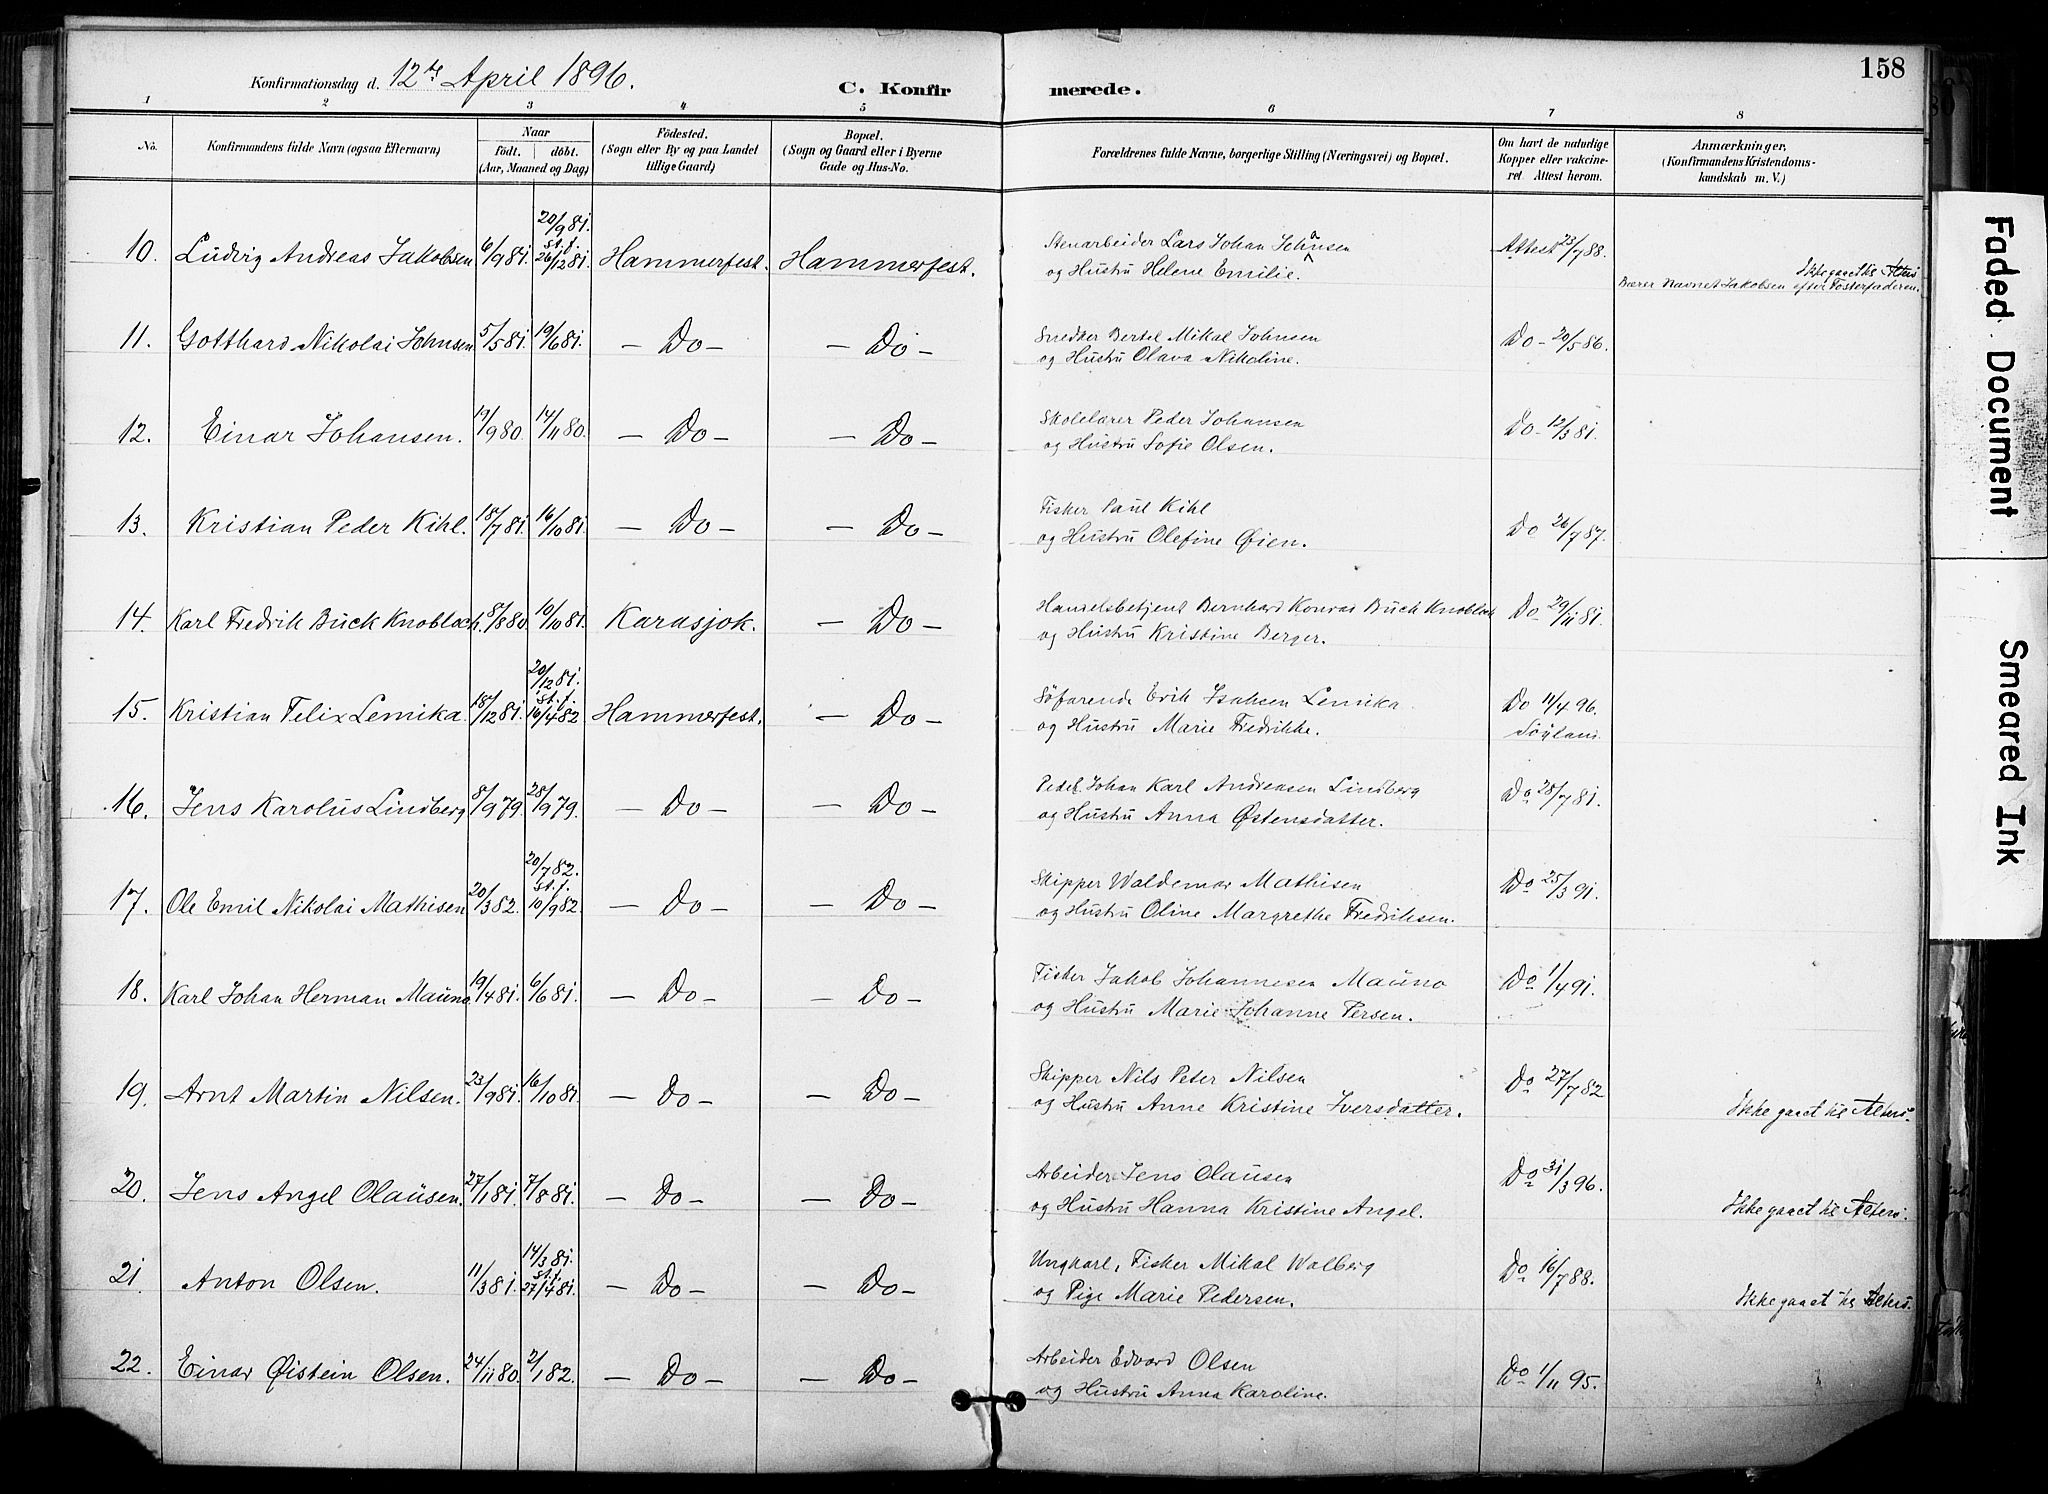 158
Konfirmationsdag d. 12te April 1896.
C. Konfirmerede.
1 2 3 4 5 6 7 8
No. Konfirmandens fulde Navn (ogsaa Efternavn) Naar Födt. döbt. (Aar, Maaned og Dag) Födested. (Sogn eller By og paa Landet tillige Gaard) Bopæl. (Sogn og Gaard eller i Byerne Gade og Hus-No. Forældrenes fulde Navne, borgerlige Stilling (Næringsvei) og Bopæl. Om havt de naturlige Kopper eller vakcineret. Attest herom. Anmærkninger, (Konfirmandens Kristendomskundskab m. V.)
10. Ludvig Andreas Jakobsen 6/9 81. 20/9 81. st. f. 26/12 81. Hammerfest. Hammerfest. Stenarbeider Lars Johan Johansen Attest 23/7 88. Ikke gaaet til Alters
og Hustru Helene Emilie. Bærer Navnet Jakobsen efter Fosterfaderen.
11. Gotthard Nikolai Johnsen 5/5 81. 19/6 81. — Do — — Do — Snedker Bertel Mikal Johnsen Do - 20/5 86.
og Hustru Olava Nikoline.
12. Einar Johansen. 19/9 80. 14/11 80. — Do — — Do — Skolelærer Peder Johansen Do - 12/3 81.
og Hustru Sofie Olsen.
13. Kristian Peder Kihl. 18/7 81. 16/10 81. — Do — — Do — Fisker Paul Kihl Do 26/7 87.
og Hustru Olefine Øien.
14. Karl Fredrik Buck Knobloch. 8/8 80. 10/10 81. Karasjok. — Do — Handelsbetjent Bernhard Konrad Buck Knobloch Do 29/11 81.
og Hustru Kristine Berger.
15. Kristian Felix Lemika. 18/12 81. 20/12 81. st. f. 16/4 82 Hammerfest. — Do — Söfarende Erik Isaksen Lemika Do 11/4 96.
og Hustru Marie Fredrikke.
16. Jens Karolus Lindberg 8/9 79. 28/9 79. — Do — — Do — Pedel Johan Karl Andreasen Lindberg Do 28/7 81.
og Hustru Anna Østensdatter.
17. Ole Emil Nikolai Mathisen 20/3 82. 20/7 82. st. f. 10/9 82. — Do — — Do — Skipper Waldemar Mathisen Do 25/3 91.
og Hustru Oline Margrethe Fredriksen.
18. Karl Johan Herman Mauno. 19/4 81. 6/6 81. — Do — — Do — Fisker Jakob Johannesen Mauno Do 1/4 91.
og Hustru Marie Johanne Persen.
19. Arnt Martin Nilsen. 23/9 81. 16/10 81. — Do — — Do — Skipper Nils Peter Nilsen Do 27/7 82
og Hustru Anne Kristine Iversdatter. Ikke gaaet til Alters.
20. Jens Angel Olausen. 27/1 81. 7/8 81. — Do — — Do — Arbeider Jens Olausen Do 31/3 96.
og Hustru Hanna Kristine Angel. Ikke gaaet til Alters.
21 Anton Olsen. 11/3 81. 14/3 81. st. f. 27/4 81. — Do — — Do — Ungkarl, Fisker Mikal Walberg Do 16/7 88.
og Pige Marie Pedersen. Ikke gaaet til Alters.
22. Einar Øistein Olsen. 24/11 80. 2/1 82. — Do — — Do — Arbeider Edvard Olsen Do 1/11 95.
og Hustru Anna Karoline.
Faded Document
Smeared Ink